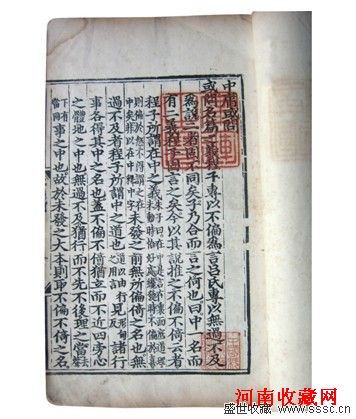 中庸或問
或問名篇之義程子專以不偏為言呂氏專以無過不及
為說二者固不同矣子乃合而言之何也曰中一名而
有二義程子固言之矣今以其說推之不偏不倚云者
程子所謂在中之義未發之前無所偏倚之名也無
過不及者程子所謂中之道也見諸行
事各得其中之名也蓋不偏不倚猶立而不近四旁心
之體地之中也無過不及猶行而不先不後理之當
事之中也故於未發之大本則取不偏不倚之名
河南收藏网
盛世收藏 www.sssc.cn